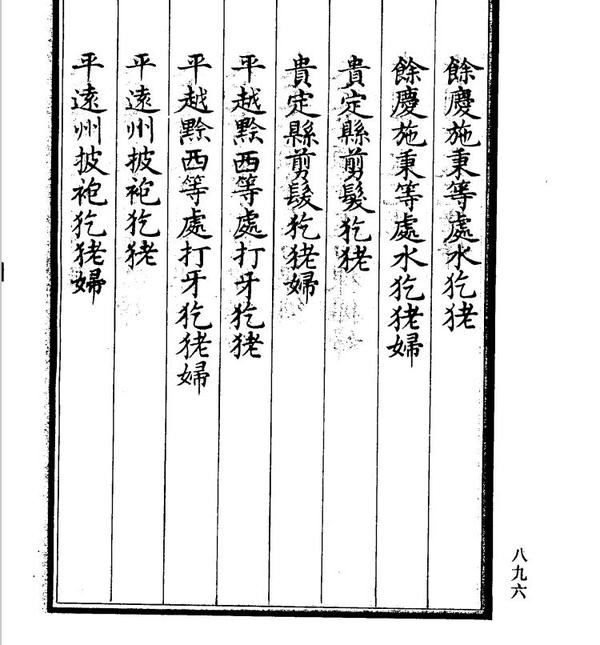 餘慶施秉等處水犵狫
餘慶施秉等處水犵狫婦
貴定縣剪髮犵狫
貴定縣剪髮犵狫婦
平越黔西等處打牙犵狫
平越黔西等處打牙犵狫婦
平遠州披袍犵狫
平遠州披袍犵狫婦
八九六